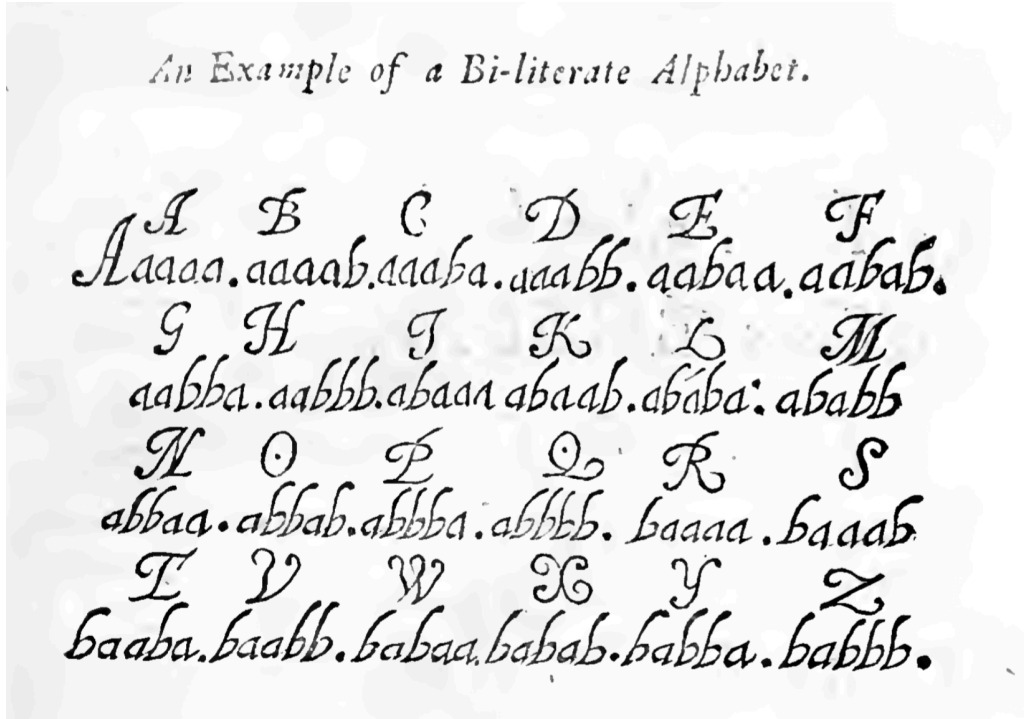 An Example of a Bi-literate Alphabet.
A B C D E F
Aaaaa. aaaab. aaaba. aaabb. aabaa. aabab.
G H I K L M
aabba. aabbb. abaaa abaab. ababa: ababb
N O P Q R S
abbaa. abbab. abbba. abbbb. baaaa. baaab
T V W X Y Z
baaba. baabb. babaa. babab. babba. babbb.